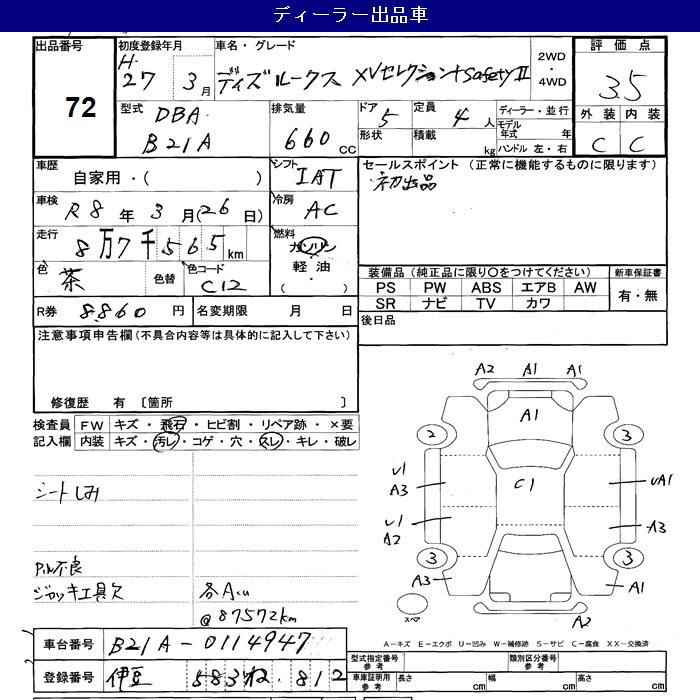 ディーラー出品車
出品番号 72
初度登録年月 H. 27 3 月
車名・グレード デイズルークス XVセレクション Safety II
2WD・4WD
評価点 3.5
型式 DBA B21A
排気量 660 cc
ドア 5 形状
定員 4 人 積載 kg
ディーラー・並行
モデル年式 年
ハンドル 左・右
外装 C 内装 C
車歴 自家用・( )
シフト IAT
セールスポイント (正常に機能するものに限ります)
初出品
車検 R8 年 3 月(26 日)
冷房 AC
走行 8万7千565 km
燃料 ガソリン・軽油・( )
色 茶 色替 色コード C12
装備品 (純正品に限り○をつけてください)
新車保証書 有・無
PS PW ABS エアB AW
SR ナビ TV カワ
R券 8860 円
名変期限 月 日
後日品
注意事項申告欄 (不具合内容等は具体的に記入して下さい)
修復歴 有 〔箇所 〕
検査員記入欄
FW キズ・飛石・ヒビ割・リペア跡・×要
内装 キズ・汚レ・コゲ・穴・スレ・キレ・破レ
シートしみ
ジャッキ工具欠
@87572km
A2 A1 A1
A1
2 3
U1 A3
C1
UA1
U1 A2
A3
3 3
A3 A1
スペア
A2
A-キズ E-エクボ U-凹み W-補修跡 S-サビ C-腐食 XX-交換済
車台番号 B21A-0114947
型式指定番号 参考
類別区分番号 参考
登録番号 伊豆 583 ね 812
車庫証明用 参考
長さ cm 幅 cm 高さ cm